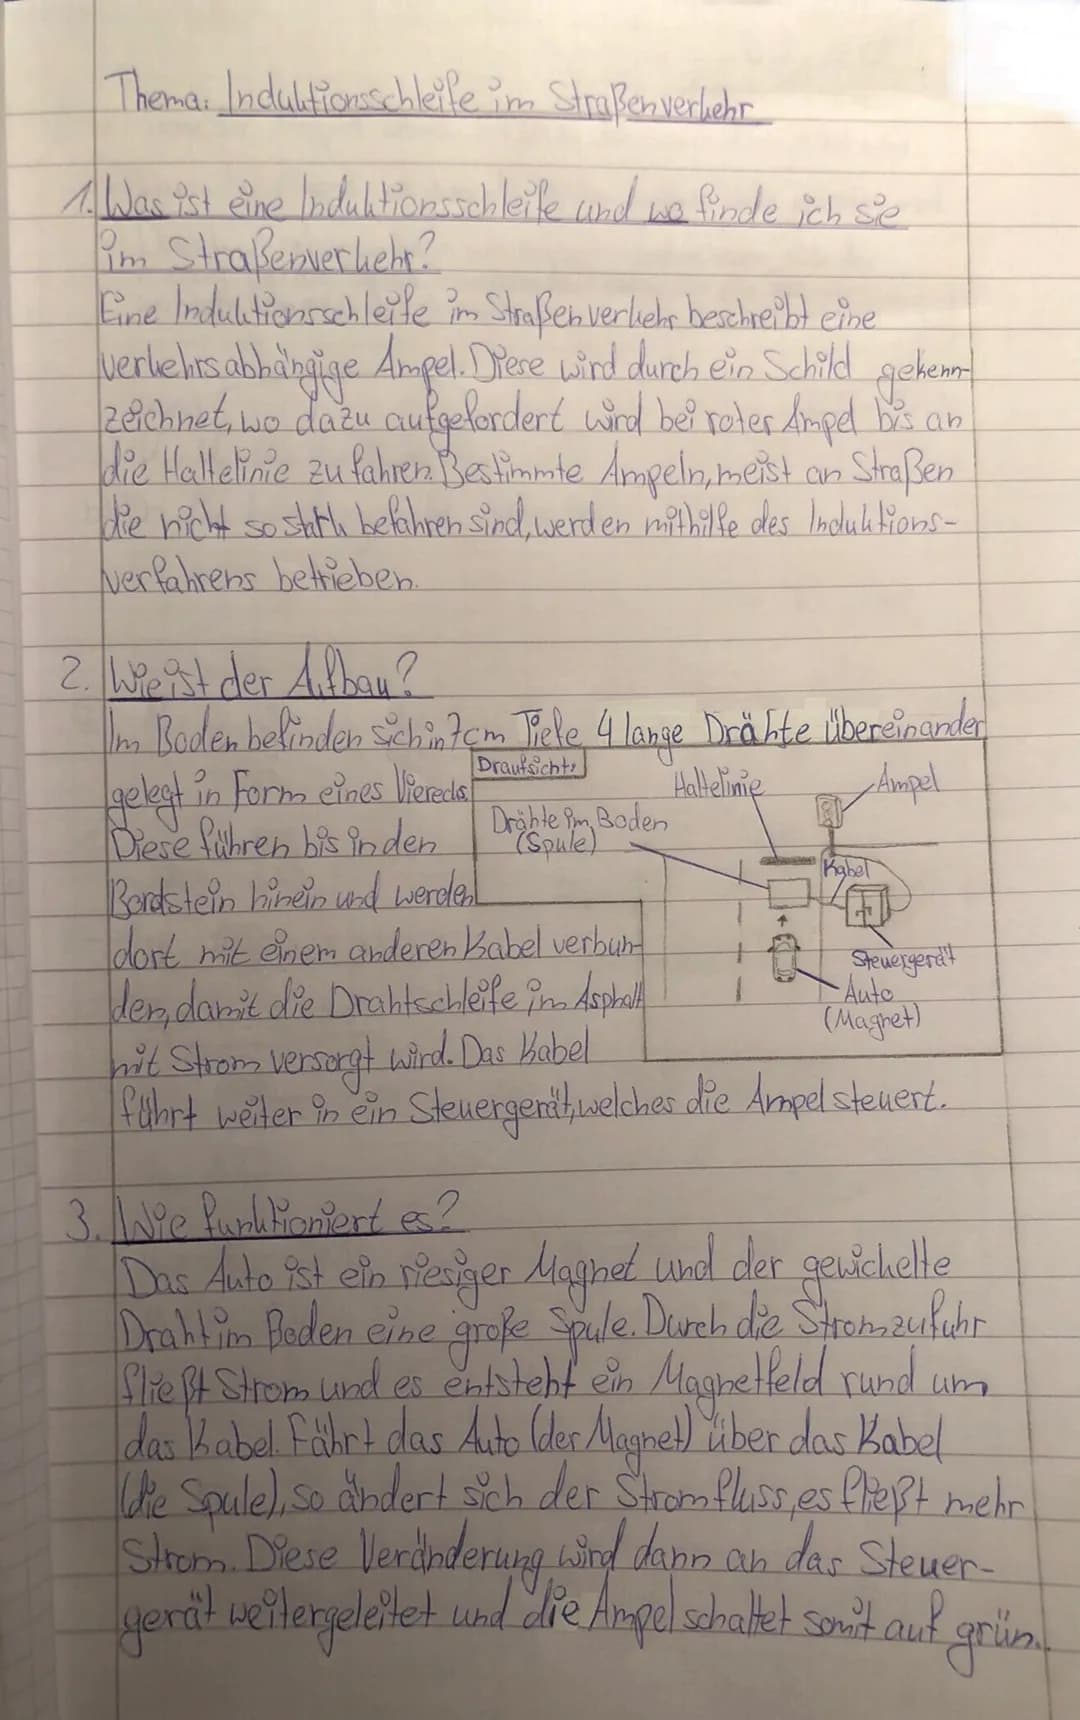 Thema: Induktionsschleife im Straßenverkehr
1. Was ist eine Induktionsschleife und wo finde ich sie
im Straßenverkehr?
Eine Induktionsschleife im Straßenverkehr beschreibt eine
verkehrsabhängige Ampel. Diese wird durch ein Schild gekenn-
zeichnet, wo dazu aufgefordert wird bei roter Ampel bis an
die Haltelinie zu fahren. Bestimmte Ampeln, meist an Straßen
die nicht so stark befahren sind, werden mithilfe des Induktions-
verfahrens betrieben.
2. Wie ist der Aufbau?
Im Boden befinden sich in 7cm Tiefe 4 lange Drähte übereinander
gelegt in Form eines Vierecks.
Diese führen bis in den
Bordstein hinein und werden
dort mit einem anderen Kabel verbun-
den, damit die Drahtschleife im Asphalt
mit Strom versorgt wird. Das Kabel
führt weiter in ein Steuergerät, welches die Ampel steuert.
Draufsicht:
Haltelinie
Ampel
Drähte im Boden
(Spule)
Kabel
Steuergerät
Auto
(Magnet)
3. Wie funktioniert es?
Das Auto ist ein riesiger Magnet und der gewickelte
Draht im Boden eine große Spule. Durch die Stromzufuhr
fließt Strom und es entsteht ein Magnetfeld rund um
das Kabel. Fährt das Auto (der Magnet) über das Kabel
(die Spule), so ändert sich der Stromfluss, es fließt mehr
Strom. Diese Veränderung wird dann an das Steuer-
gerät weitergeleitet und die Ampel schaltet somit auf grün.